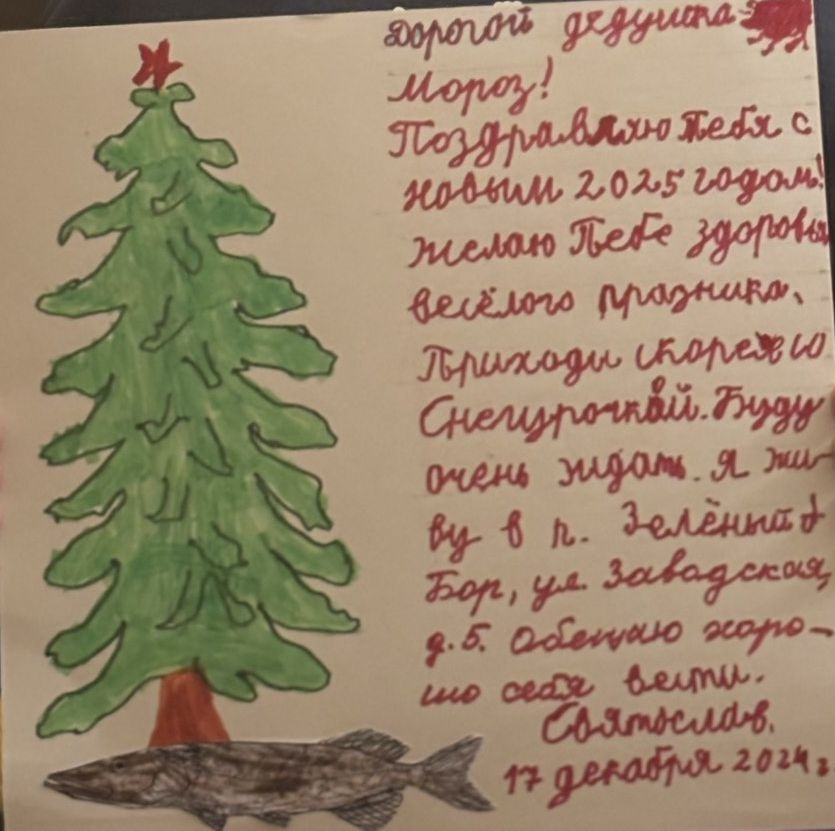 Дорогой дедушка
Мороз!
Поздравляю тебя с
новым 2025 годом!
Желаю тебе здоровья
весёлого празника.
Приходи скорея со
Снегурочкой. Буду
очень ждать. Я жи-
ву в п. Зелёный
Бор, ул. Заводская,
д. 5. Обещаю хоро-
шо себя вести.
Святослав.
17 декабря 2024 г